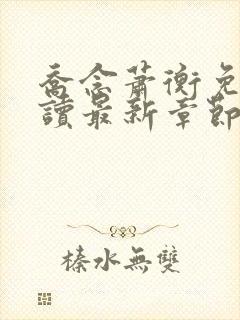 喬念蕭衡免
讀最新章節
榛水無雙